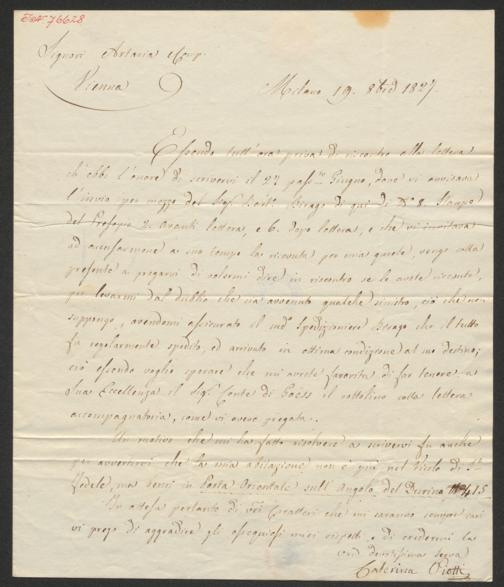 76628
Signori Artaria e Comp.
Vienna
Milano 19. 8bre 1827.
Essendo tutt'ora priva di riscontro alla lettera
ch'ebbi l'onore di scrivervi il 27 pass.to Giugno, dove vi avvisava
l'invio per mezzo del Sig.r Berago di qui di N.o 8. Stampe
del Presepio 2. Avanti lettera, e 6. dopo lettera, e che vi invitava
ad accusarmene a suo tempo la ricevuta per mia quiete, vengo colla
presente a pregarvi di volermi dire in riscontro se le avete ricevute,
per levarmi dal dubbio che sia avvenuto qualche sinistro, ciò che non
suppongo, avendomi assicurato il sud.o Spedizioniere Berago che il tutto
fu regolarmente spedito, ed arrivato in ottima condizione al suo destino;
ciò essendo voglio sperare che mi avrete favorita di far tenere a
Sua Eccellenza il Sig.r Conte di Goëss il rottolino colla lettera
accompagnatoria, come vi avevo pregata.
Un motivo che mi ha fatto risolvere a scrivervi fu anche
per avvertirvi che la mia abitazione non è più nel Vicolo di S.
Fedele, ma bensì in Porta Orientale sull'Angolo del Durino N.o 415
In attesa pertanto di vostri Caratteri che mi saranno sempre cari
vi prego di aggradire gli ossequiosi miei rispetti, e di credermi la
vostra devotissima serva
Caterina Piotti